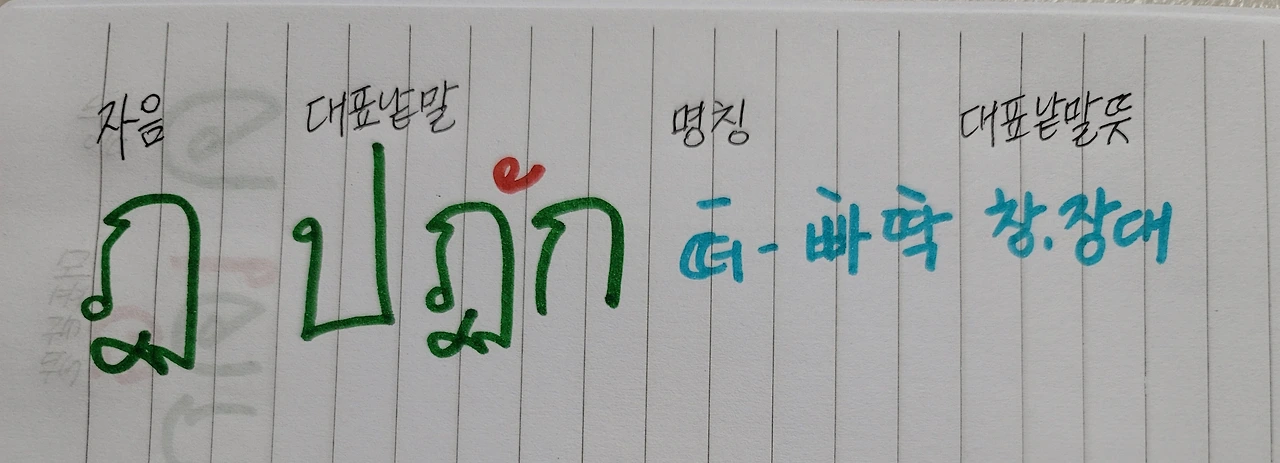 자음 대표낱말 명칭 대표낱말뜻
ฏ ปฏัก 떠-빠딱 창.장대